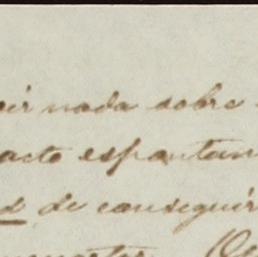 nada sobre
acto espontan
d de conseguir